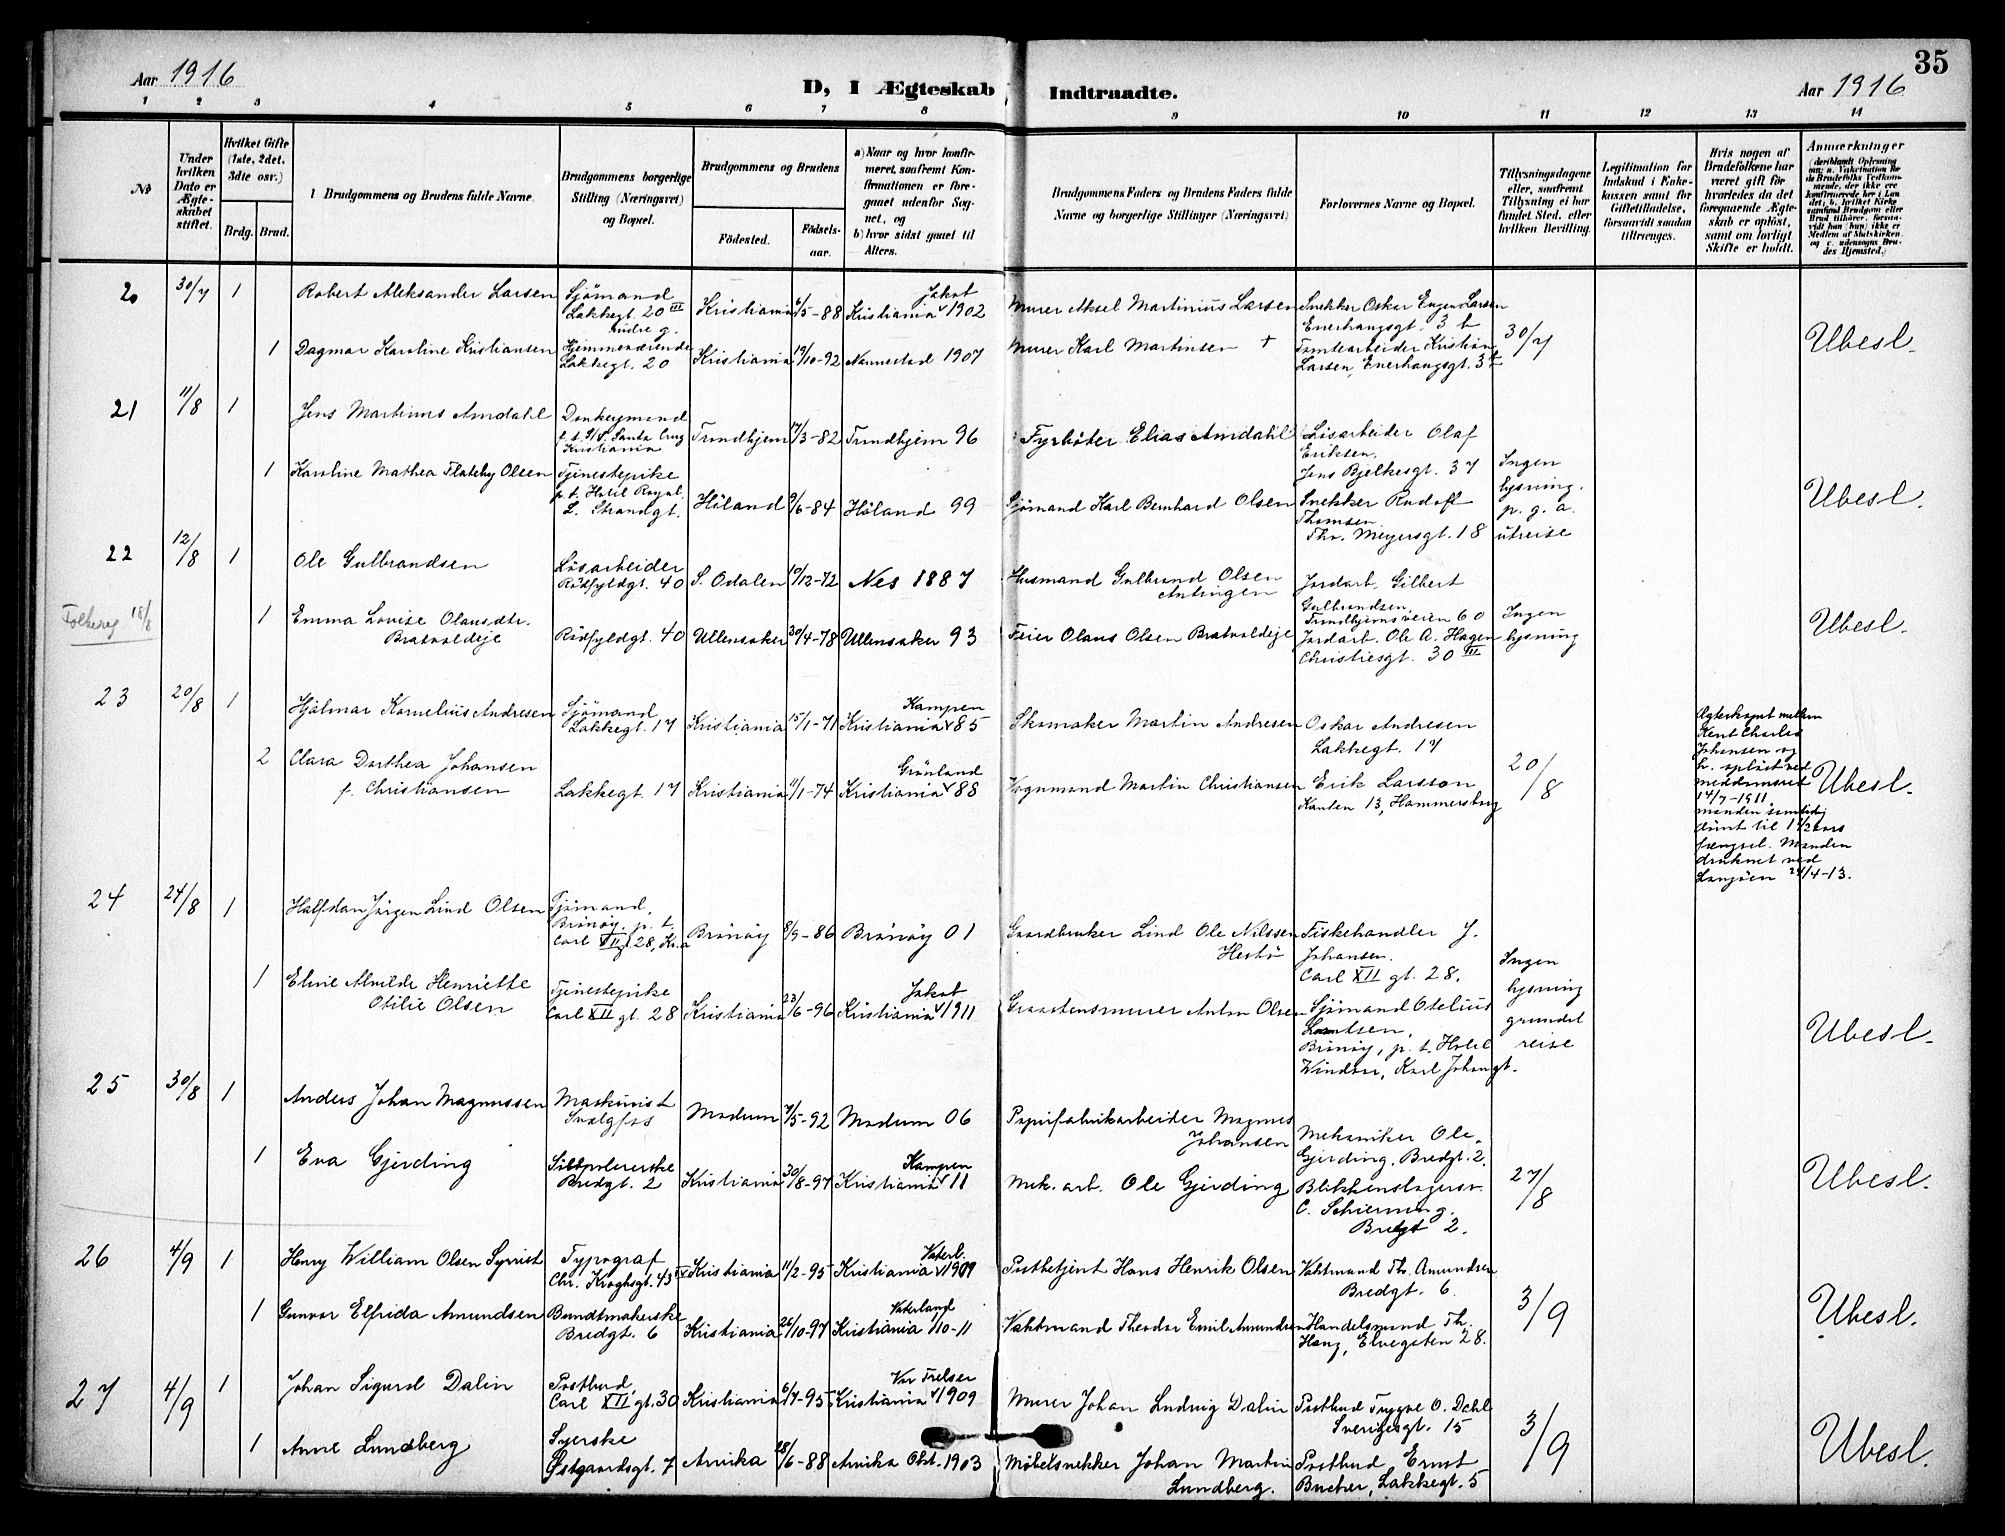 35
Aar 1916
D, I Ægteskab Indtraadte.
Aar 1916
1 2 3 4 5 6 7 8 9 10 11 12 13 14
No
Under hvilken Dato er Ægteskabet stiftet.
Hvilket Gifte (1ste, 2det, 3die osv.)
Brdg. Brud.
Brudgommens og Brudens fulde Navne.
Brudgommens borgerlige Stilling (Næringsvei) og Bopæl.
Brudgommens og Brudens
Fødested.
Fødselsaar.
a) Naar og hvor konfirmeret, saafremt Konfirmationen er foregaaet udenfor Sognet, og
b) hvor sidst gaaet til Alters.
Brudgommens Faders og Brudens Faders fulde Navne og borgerlige Stillinger (Næringsvei)
Forlovernes Navne og Bopæl.
Tillysningsdagene eller, saafremt Tillysning ei har fundet Sted, efter hvilken Bevilling.
Legitimation for Indskud i Enkekassen samt for Giftetilladelse, forsaavidt saadan tiltrænges.
Hvis nogen af Brudefolkene har været gift før hvorledes da det foregaaende Ægteskab er opløst, samt om lovligt Skifte er holdt.
Anmerkninger
20 30/7 1 Robert Aleksander Larsen
Sjömand
Lakkegt. 20 III
Kristiania 6/5-88
Jakob
Kristiania 1902
Murer Aksel Martinius Larsen
Snekker Oskar Eugen Larsen
Enerhaugsgt. 3 b
1 Dagmar Karoline Kristiansen
Hjemmeværende
Lakkegt. 20
Kristiania 19/10-92 Nannestad 1907
Murer Karl Martinsen +
Tomtearbeider Kristian
Larsen, Enerhaugsgt. 3 b
30/7
Ubesl.
21 11/8 1 Jens Martinus Amdahl
Donkeymand
p. t. S/S. Santa Cruz
Kristiania
Trondhjem 17/3-82 Trondhjem 96
Fyrböter Elias Amdahl
Lösarbeider Olaf
Eriksen.
Jens Bjelkesgt. 37
1 Karoline Mathea Flateby Olsen
Tjenestepike
p. t. Hotel Royal.
L. Strandgt.
Höland 9/6-84 Höland 99
Sjömand Karl Bernhard Olsen
Snekker Rudolf
Thomsen.
Thv. Meyersgt. 18
Ingen
lysning.
p. g. a.
utreise
Ubesl.
22 12/8 1 Ole Gulbrandsen
Lösarbeider
Rödfyldgt. 40
S. Odalen 10/12-72 Nes 1887
Husmand Gulbrand Olsen
Jordarb. Gilbert
Gulbrandsen,
Trondhjemsveien 60
18/8
1 Emma Lovise Olausdtr.
Bratvoldeje
Rödfyldgt. 40 Ullensaker 30/4-78 Ullensaker 93
Feier Olaus Olsen Bratvoldeje
Jordarb. Ole A. Hagen
Christiesgt. 30 III
Ingen
lysning
Ubesl.
23 20/8 1 Hjalmar Kornelius Andresen
Sjömand
Lakkegt. 17
Kristiania 15/1-71
Kampen
Kristiania 85
Skomaker Martin Andresen
Oskar Andresen
Lakkegt. 17
2 Clara Dorthea Johansen
f. Christiansen
Lakkegt. 17 Kristiania 11/1-74
Grönland
Kristiania 88
Vognmand Martin Christiansen
Erik Larsson
Kanten 13, Hammersborg
20/8
Ægteskapet mellem
Kent Charles
Johansen og
h. oplöst ved
meddomsret
14/7-1911,
manden samtidig
dömt til 1 1/2 aars
fængsel. Manden
druknet ved
24/4-13.
Ubesl.
24 24/8 1 Halfdan Jörgen Lind Olsen
Sjömand,
Brönöy. p. t.
Carl XII gt 28, Kr.a
Brönöy 8/9-86 Brönöy 01
Gaardbruker Lind Ole Nilssen
Hestö
Fiskehandler J.
Johansen.
Carl XII gt. 28.
1 Eline Alvilde Henriette
Otilie Olsen
Tjenestepike
Carl XII gt. 28
Kristiania 23/6-96
Jakob
Kristiania 1911
Graastensmurer Anton Olsen
Sjömand Otelius
Brönöy, p. t. Hotel
Windsor, Karl Johansgt.
Ingen
lysning
grundet
reise
Ubesl.
25 30/8 1 Anders Johan Magnussen
Maskinist
Svælgfos
Modum 7/5-92 Modum 06
Papirfabrikarbeider Magnus
Johansen
Mekaniker Ole
Gjerding, Bredgt. 2.
1 Eva Gjerding
Sölvpolererske
Bredgt. 2
Kristiania 30/8-97
Kampen
Kristiania 11
Mek. arb. Ole Gjerding
Blikkenslagersv.
C. Schierning.
Bredgt 2.
27/8
Ubesl.
26 4/9 1 Henry William Olsen Syvrist
Typograf
Chr. Kroghsgt. 43 IV
Kristiania 11/2-95
Vaterl.
Kristiania 1909
Postbetjent Hans Henrik Olsen
Vaktmand Th. Amundsen
Bredgt. 6.
1 Gunvor Elfrida Amundsen
Bundtmakerske
Bredgt. 6
Kristiania 26/10-97
Vaterland
Kristiania 1/10-11
Vaktmand Theodor Emil Amundsen
Handelsmand Th.
Haug, Elvegaten 28.
3/9
Ubesl.
27 4/9 1 Johan Sigurd Dalin
Postbud,
Carl XII gt. 30
Kristiania 6/7-95
Vor Frelser
Kristiania 1909
Murer Johan Ludvig Dalin
Postbud Trygve O. Dahl
Sverigesgt. 15
1 Anne Lundberg
Syerske
Østgaardsgt. 7
Arvika 28/6-88 Arvika Okt. 1903
Möbelsnekker Johan Martin
Lundberg.
Postbud Ernst
Bucher, Lakkegt. 5
3/9
Ubesl.